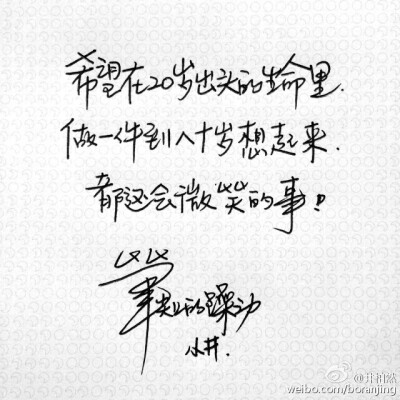 希望在20岁出头的生命里.
做一件到八十岁想起来.
都还会微笑的事!
的躁动
小井.
@井柏然
weibo.com/boranjing